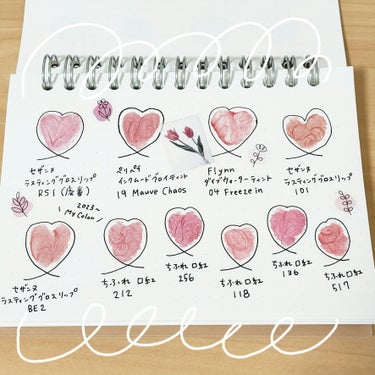 セザンヌ
ラスティンググロスリップ
RS1 (廃番)
ペリペラ
インクムードグロイティント
19 Mauve Chaos
Flynn
ダイブウォーターティント
04 Freeze in
セザンヌ
ラスティンググロスリップ
101
2023
My Color
セザンヌ
ラスティンググロスリップ
BE2
ちふれ口紅
212
ちふれ口紅
256
ちふれ口紅
118
ちふれ口紅
136
ちふれ口紅
517